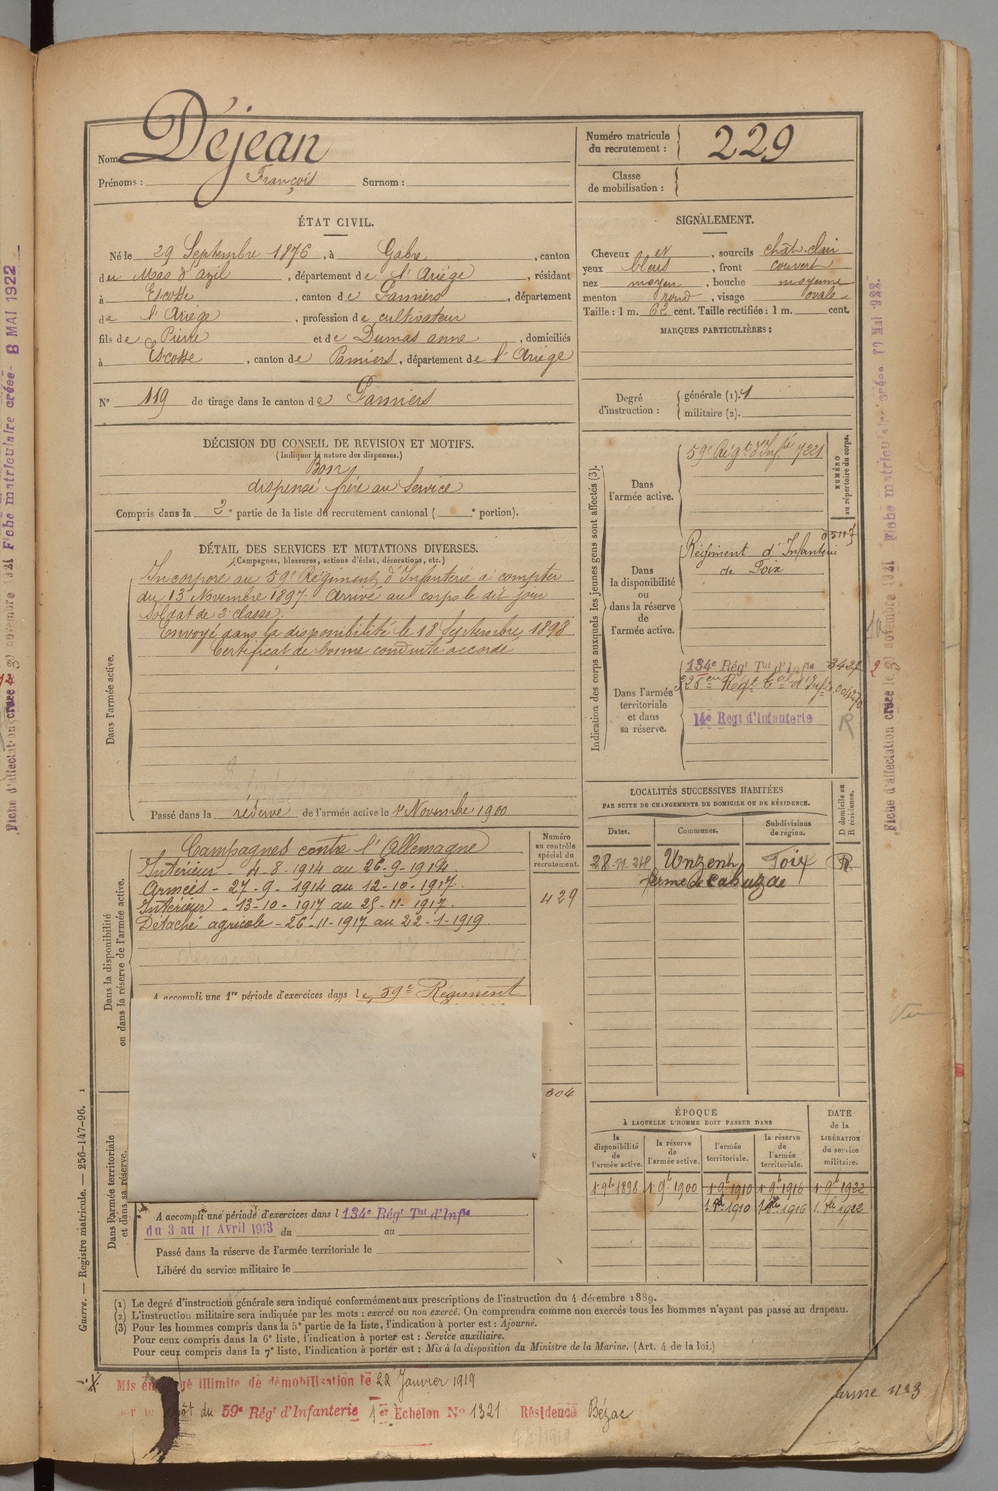 Nom Déjean
Prénoms : François Surnom :
Numéro matricule du recrutement : 229
Classe de mobilisation :
ÉTAT CIVIL.
Né le 29 Septembre 1876, à Gabre, canton
du Mas d'azil, département de l'Ariège, résidant
à Escosse, canton de Pamiers, département
de l'Ariège, profession de cultivateur
fils de Pierre et de Dumas anne, domiciliés
à Escosse, canton de Pamiers, département de l'Ariège
N° 119 de tirage dans le canton de Pamiers
SIGNALEMENT.
Cheveux et, sourcils chât. clair
yeux bleus, front couvert
nez moyen, bouche moyenne
menton rond, visage ovale
Taille : 1 m. 62 cent. Taille rectifiée : 1 m. cent.
MARQUES PARTICULIÈRES :
Degré d'instruction : générale (1). militaire (2).
DÉCISION DU CONSEIL DE REVISION ET MOTIFS.
(Indiquer la nature des dispenses.)
Bon
dispensé frère au Service
Compris dans la 2e partie de la liste de recrutement cantonal ( e portion).
DÉTAIL DES SERVICES ET MUTATIONS DIVERSES.
(Campagnes, blessures, actions d'éclat, décorations, etc.)
Dans l'armée active.
Incorporé au 59e Régiment d'Infanterie à compter
du 13 Novembre 1897. Arrivé au corps le dit jour
Soldat de 2e classe.
Envoyé dans la disponibilité le 18 Septembre 1898
Certificat de bonne conduite accordé
Passé dans la réserve de l'armée active le 1 Novembre 1900
Indication des corps auxquels les jeunes gens sont affectés (3).
NUMÉRO au répertoire du corps.
Dans l'armée active.
59e Régt d'Infie 7221
Dans la disponibilité ou dans la réserve de l'armée active.
Régiment d'Infanterie
de Foix
Dans l'armée territoriale et dans sa réserve.
134e Régt Tal d'Infie
14e Regt d'Infanterie
R
LOCALITÉS SUCCESSIVES HABITÉES
PAR SUITE DE CHANGEMENTS DE DOMICILE OU DE RÉSIDENCE.
Dates. Communes. Subdivisions de région. D domicile ou R résidence.
Unzent Foix R
ferme de Cabuzac
Dans la disponibilité ou dans la réserve de l'armée active.
Numéro au contrôle spécial du recrutement.
Campagnes contre l'Allemagne
Intérieur - 4-8-1914 au 26-9-1914
Armées - 27-9-1914 au 12-10-1917.
Intérieur - 13-10-1917 au 25-11-1917.
Détaché agricole - 26-11-1917 au 22-1-1919
429
A accompli une 1re période d'exercices dans le 59e Régiment
304
Dans l'armée territoriale et dans sa réserve.
A accompli une période d'exercices dans l 134e Régt Tal d'Infie
du 3 au 11 Avril 1913 du au
Passé dans la réserve de l'armée territoriale le
Libéré du service militaire le
ÉPOQUE
À LAQUELLE L'HOMME DOIT PASSER DANS
DATE de la LIBÉRATION du service militaire.
la disponibilité de l'armée active. la réserve de l'armée active. l'armée territoriale. la réserve de l'armée territoriale.
1 9b 1898 1 9b 1900 1 9b 1910 1 9b 1916 1 9b 1922
(1) Le degré d'instruction générale sera indiqué conformément aux prescriptions de l'instruction du 4 décembre 1889.
(2) L'instruction militaire sera indiquée par les mots : exercé ou non exercé. On comprendra comme non exercés tous les hommes n'ayant pas passé au drapeau.
(3) Pour les hommes compris dans la 5e partie de la liste, l'indication à porter est : Ajourné.
Pour ceux compris dans la 6e liste, l'indication à porter est : Service auxiliaire.
Pour ceux compris dans la 7e liste, l'indication à porter est : Mis à la disposition du Ministre de la Marine. (Art. 4 de la loi.)
Guerre. — Registre matricule. — 256-147-96. 1
Mis en illimité de démobilisation le 22 Janvier 1919
dépôt du 59e Régt d'Infanterie 1er Echelon No 1321 Résidence Bézac
Fiche matriculaire créée 8 MAI 1922